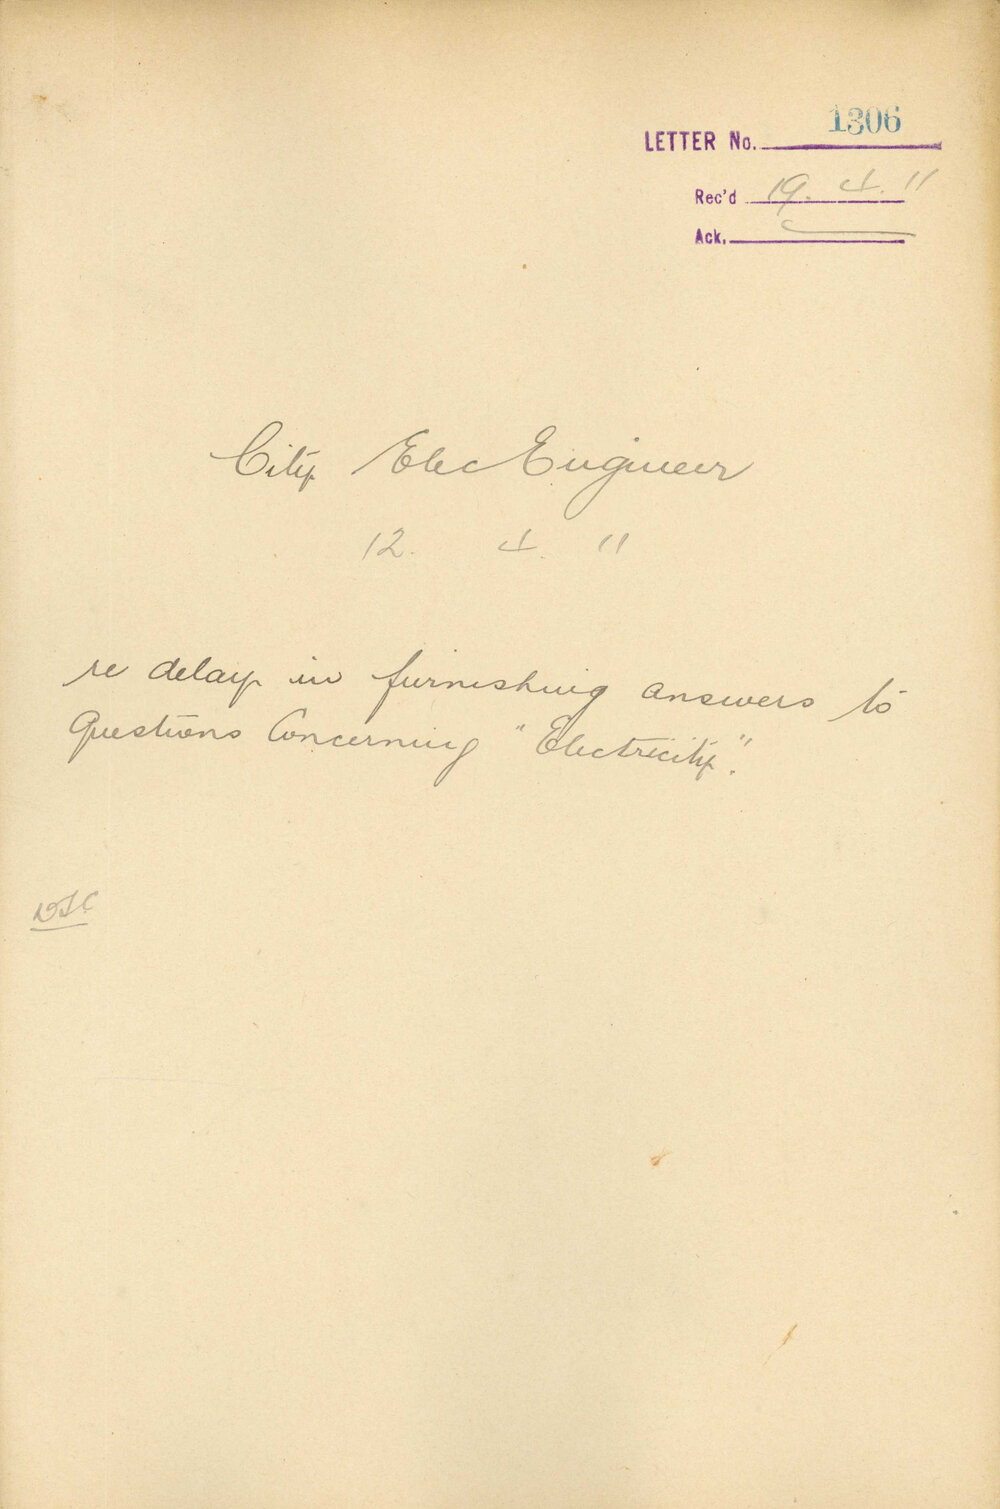 LETTER No. 1306
Rec'd 19. 4. 11
Ack.
City Elec Engineer
12. 4. 11
re delay in furnishing answers to
Questions Concerning "Electricity".